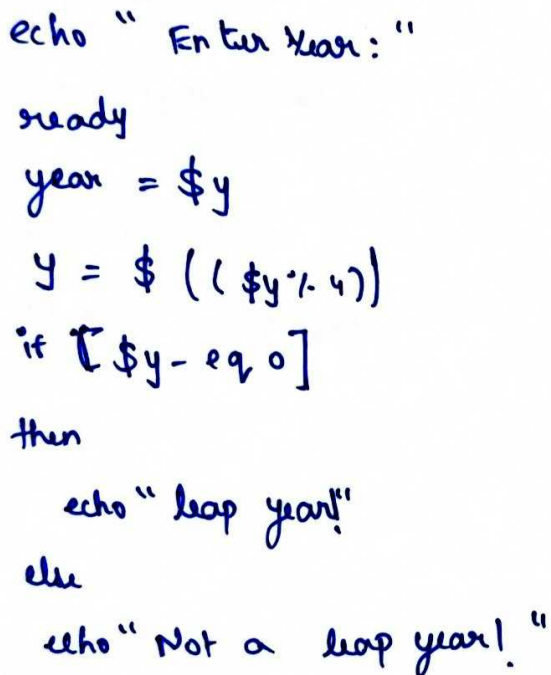 echo " Enter Year: "
ready
year = $y
y = $ (( $y % 4))
if [ $y - eq 0 ]
then
echo " leap year!"
else
echo " Not a leap year! "